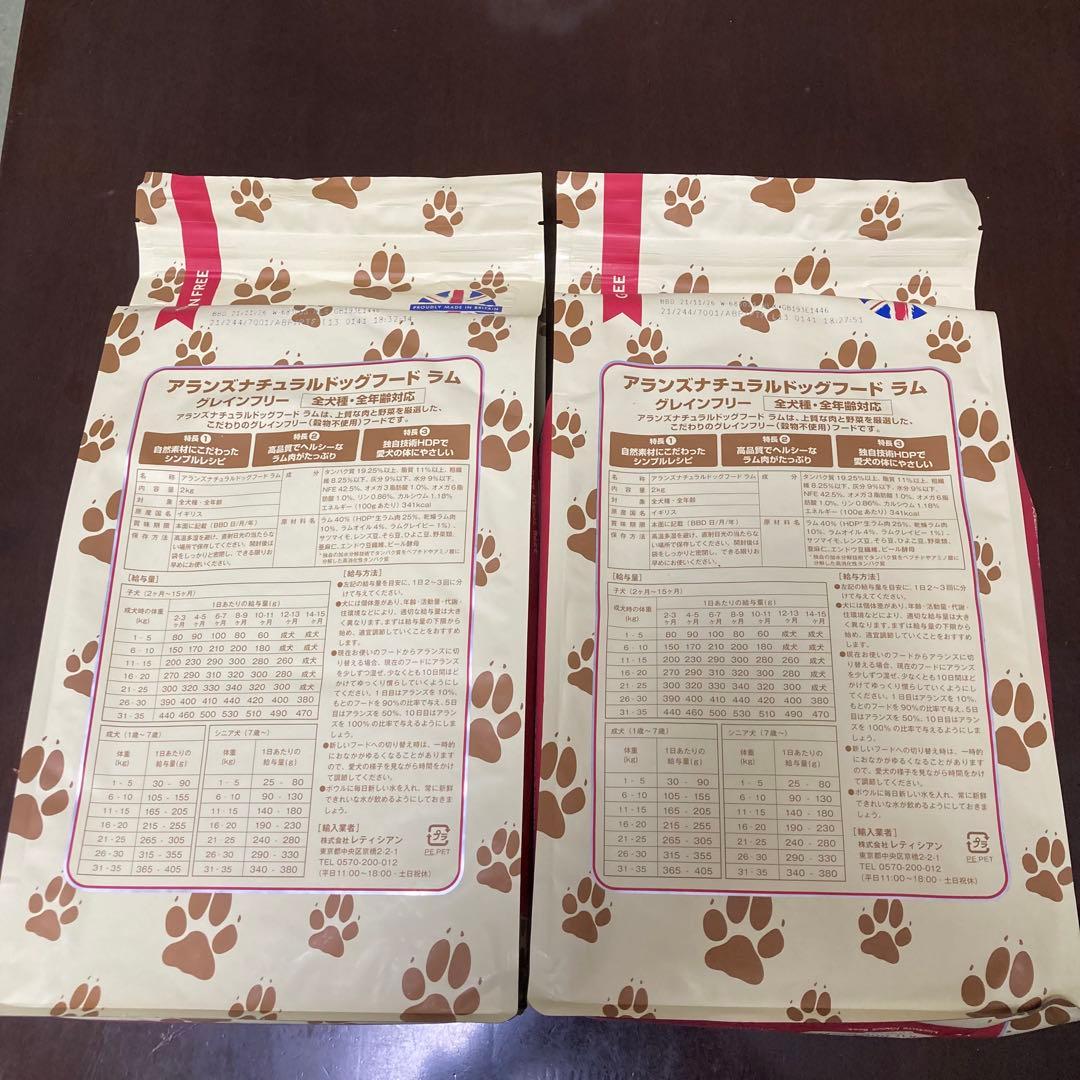 FREE
PROUDLY MADE IN BRITAIN
BBD 21/11/26
GB193E1446
18:37:14
アランズナチュラルドッグフード ラム
グレインフリー 全犬種・全年齢対応
アランズナチュラルドッグフード ラムは、上質な肉と野菜を厳選した、
こだわりのグレインフリー(穀物不使用)フードです。
特長1 特長2 特長3
自然素材にこだわった 高品質でヘルシーな 独自技術HDPで
シンプルレシピ ラム肉がたっぷり 愛犬の体にやさしい
名 称 アランズナチュラルドッグフード ラム
内容量 2kg
対 象 全犬種・全年齢
原産国 イギリス
賞味期限 本面に記載(BBD 日/月/年)
保存方法 高温多湿を避け、直射日光の当たらな
い場所で保存してください。開封後は
袋をしっかりと密閉し、できる限りお
早めにお使いください。
成 分 タンパク質 19.25%以上、脂質 11%以上、粗繊
維 8.25%以下、灰分 9%以下、水分 9%以下、
NFE 42.5%、オメガ3脂肪酸 1.0%、オメガ6脂
肪酸 1.0%、リン 0.86%、カルシウム 1.18%
エネルギー(100gあたり) 341kcal
原材料名 ラム 40%(HDP*生ラム肉 25%、乾燥ラム肉
10%、ラムオイル 4%、ラムグレイビー 1%)、
サツマイモ、レンズ豆、そら豆、ひよこ豆、野菜類、
亜麻仁、エンドウ豆繊維、ビール酵母
*独自の加水分解技術でタンパク質をペプチドやアミノ酸に
分解した高消化性タンパク質
[給与量]
子犬(2ヶ月~15ヶ月)
成犬時の体重(kg) 1日あたりの給与量(g)
2-3ヶ月 4-5ヶ月 6-7ヶ月 8-9ヶ月 10-11ヶ月 12-13ヶ月 14-15ヶ月
1 - 5 80 90 100 80 60 成犬 成犬
6 - 10 150 170 210 200 180 成犬 成犬
11 - 15 200 230 290 300 280 260 成犬
16 - 20 270 300 290 300 300 280 成犬
21 - 25 300 320 330 340 320 300 成犬
26 - 30 390 400 410 440 420 400 380
31 - 35 440 460 500 530 510 490 470
成犬(1歳~7歳)
体重(kg) 1日あたりの給与量(g)
1 - 5 30 - 90
6 - 10 105 - 155
11 - 15 165 - 205
16 - 20 215 - 255
21 - 25 265 - 305
26 - 30 315 - 355
31 - 35 365 - 405
シニア犬(7歳~)
体重(kg) 1日あたりの給与量(g)
1 - 5 25 - 80
6 - 10 90 - 130
11 - 15 140 - 180
16 - 20 190 - 230
21 - 25 240 - 280
26 - 30 290 - 330
31 - 35 340 - 380
[給与方法]
●左記の給与量を目安に、1日2~3回に分
けて与えてください。
●犬には個体差があり、年齢・活動量・代謝・
住環境などにより、適切な給与量は大き
く異なります。まずは給与量の下限から
始め、適宜調節していくことをおすすめ
します。
●現在お使いのフードからアランズに切
り替える場合、現在のフードにアランズ
を少しずつ混ぜ、少なくとも10日間ほど
かけてゆっくり慣らしていくようにし
てください。1日目はアランズを10%、
もとのフードを90%の比率で与え、5日
目はアランズを50%、10日目はアランズ
を100%の比率で与えるようにしま
しょう。
●新しいフードへの切り替え時は、一時的
におなかがゆるくなることがあります
ので、愛犬の様子を見ながら時間をかけ
て調節してください。
●ボウルに毎日新しい水を入れ、常に新鮮
できれいな水が飲めるようにしておきま
しょう。
[輸入業者]
株式会社レティシアン
東京都中央区京橋2-2-1
TEL 0570-200-012
(平日11:00~18:00・土日祝休)
プラ
PE,PET
BBD 21/11/26
GB193E1446
21/244/7001/
0141 18:27:51
アランズナチュラルドッグフード ラム
グレインフリー 全犬種・全年齢対応
アランズナチュラルドッグフード ラムは、上質な肉と野菜を厳選した、
こだわりのグレインフリー(穀物不使用)フードです。
特長1 特長2 特長3
自然素材にこだわった 高品質でヘルシーな 独自技術HDPで
シンプルレシピ ラム肉がたっぷり 愛犬の体にやさしい
名 称 アランズナチュラルドッグフード ラム
内容量 2kg
対 象 全犬種・全年齢
原産国 イギリス
賞味期限 本面に記載(BBD 日/月/年)
保存方法 高温多湿を避け、直射日光の当たらな
い場所で保存してください。開封後は
袋をしっかりと密閉し、できる限りお
早めにお使いください。
成 分 タンパク質 19.25%以上、脂質 11%以上、粗繊
維 8.25%以下、灰分 9%以下、水分 9%以下、
NFE 42.5%、オメガ3脂肪酸 1.0%、オメガ6脂
肪酸 1.0%、リン 0.86%、カルシウム 1.18%
エネルギー(100gあたり) 341kcal
原材料名 ラム 40%(HDP*生ラム肉 25%、乾燥ラム肉
10%、ラムオイル 4%、ラムグレイビー 1%)、
サツマイモ、レンズ豆、そら豆、ひよこ豆、野菜類、
亜麻仁、エンドウ豆繊維、ビール酵母
*独自の加水分解技術でタンパク質をペプチドやアミノ酸に
分解した高消化性タンパク質
[給与量]
子犬(2ヶ月~15ヶ月)
成犬時の体重(kg) 1日あたりの給与量(g)
2-3ヶ月 4-5ヶ月 6-7ヶ月 8-9ヶ月 10-11ヶ月 12-13ヶ月 14-15ヶ月
1 - 5 80 90 100 80 60 成犬 成犬
6 - 10 150 170 210 200 180 成犬 成犬
11 - 15 200 230 290 300 280 260 成犬
16 - 20 270 300 290 300 300 280 成犬
21 - 25 300 320 330 340 320 300 成犬
26 - 30 390 400 410 440 420 400 380
31 - 35 440 460 500 530 510 490 470
成犬(1歳~7歳)
体重(kg) 1日あたりの給与量(g)
1 - 5 30 - 90
6 - 10 105 - 155
11 - 15 165 - 205
16 - 20 215 - 255
21 - 25 265 - 305
26 - 30 315 - 355
31 - 35 365 - 405
シニア犬(7歳~)
体重(kg) 1日あたりの給与量(g)
1 - 5 25 - 80
6 - 10 90 - 130
11 - 15 140 - 180
16 - 20 190 - 230
21 - 25 240 - 280
26 - 30 290 - 330
31 - 35 340 - 380
[給与方法]
●左記の給与量を目安に、1日2~3回に分
けて与えてください。
●犬には個体差があり、年齢・活動量・代謝・
住環境などにより、適切な給与量は大き
く異なります。まずは給与量の下限から
始め、適宜調節していくことをおすすめ
します。
●現在お使いのフードからアランズに切
り替える場合、現在のフードにアランズ
を少しずつ混ぜ、少なくとも10日間ほど
かけてゆっくり慣らしていくようにし
てください。1日目はアランズを10%、
もとのフードを90%の比率で与え、5日
目はアランズを50%、10日目はアランズ
を100%の比率で与えるようにしま
しょう。
●新しいフードへの切り替え時は、一時的
におなかがゆるくなることがあります
ので、愛犬の様子を見ながら時間をかけ
て調節してください。
●ボウルに毎日新しい水を入れ、常に新鮮
できれいな水が飲めるようにしておきま
しょう。
[輸入業者]
株式会社レティシアン
東京都中央区京橋2-2-1
TEL 0570-200-012
(平日11:00~18:00・土日祝休)
プラ
PE,PET